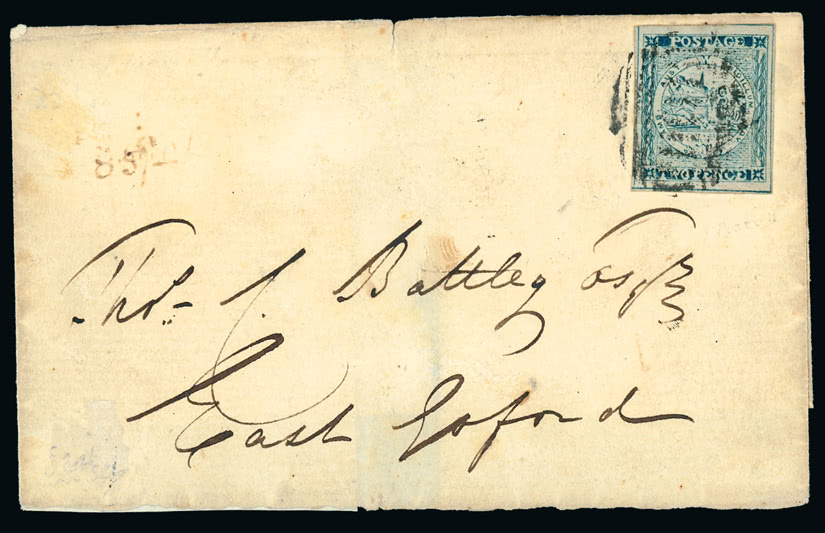 POSTAGE
TWO PENCE
Thos. C. Battley Esqr
East Gosford